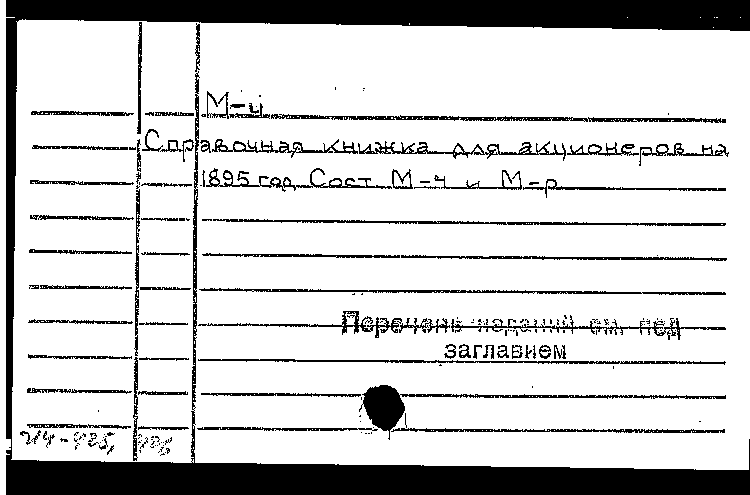 М-ч
Справочная книжка для акционеров на
1895 год Сост М-ч и М-р
Перечень изданий см. под
заглавием